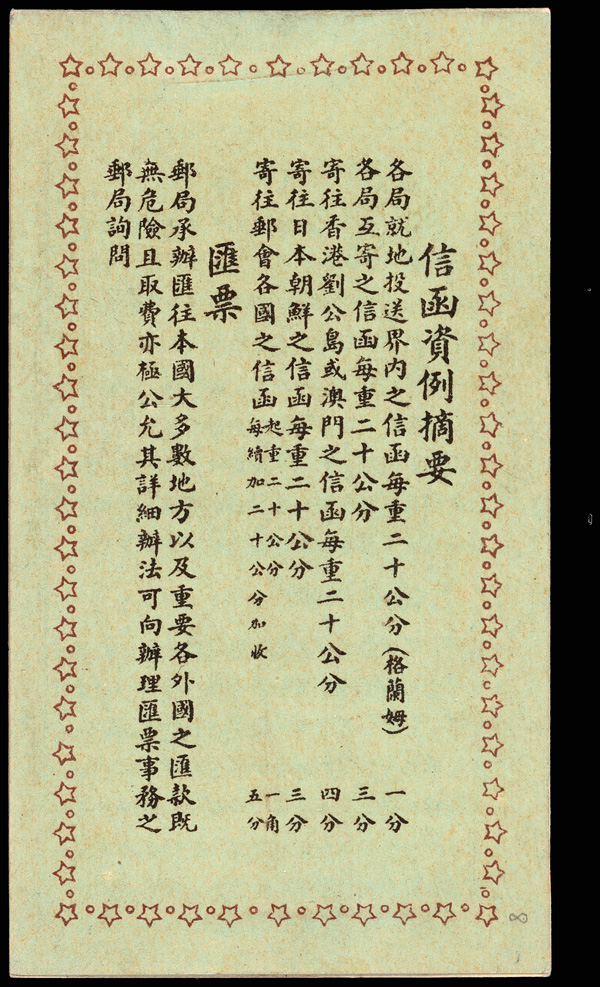 信函資例摘要
各局就地投送界內之信函每重二十公分(格蘭姆) 一分
各局互寄之信函每重二十公分 三分
寄往香港劉公島或澳門之信函每重二十公分 四分
寄往日本朝鮮之信函每重二十公分 三分
寄往郵會各國之信函 起重二十公分 一角
每續加二十公分加收 五分
匯票
郵局承辦匯往本國大多數地方以及重要各外國之匯款既
無危險且取費亦極公允其詳細辦法可向辦理匯票事務之
郵局詢問
8